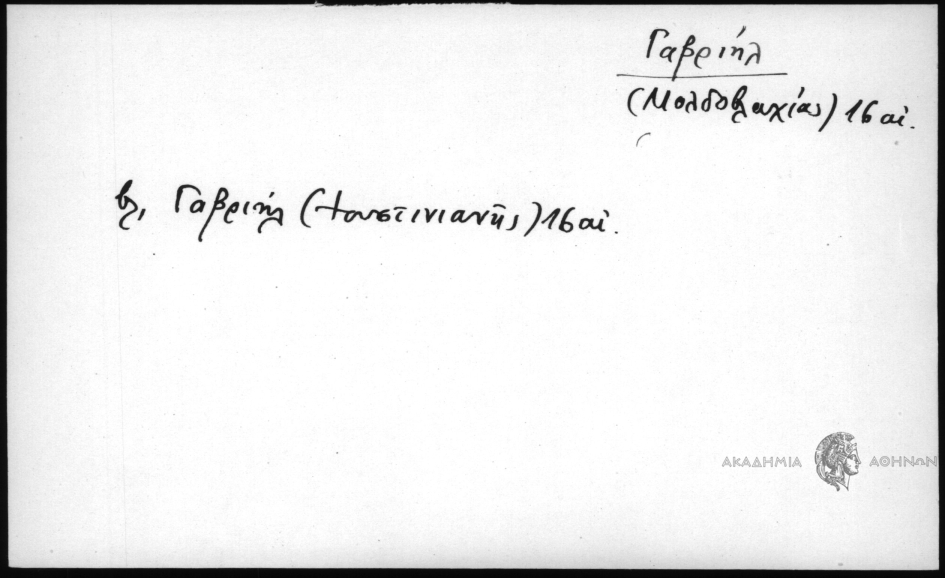 Γαβριήλ
(Μολδοβλαχίας) 16 αἰ.
βλ. Γαβριήλ (Ἰουστινιανῆς) 16 αἰ.
ΑΚΑΔΗΜΙΑ ΑΘΗΝΩΝ